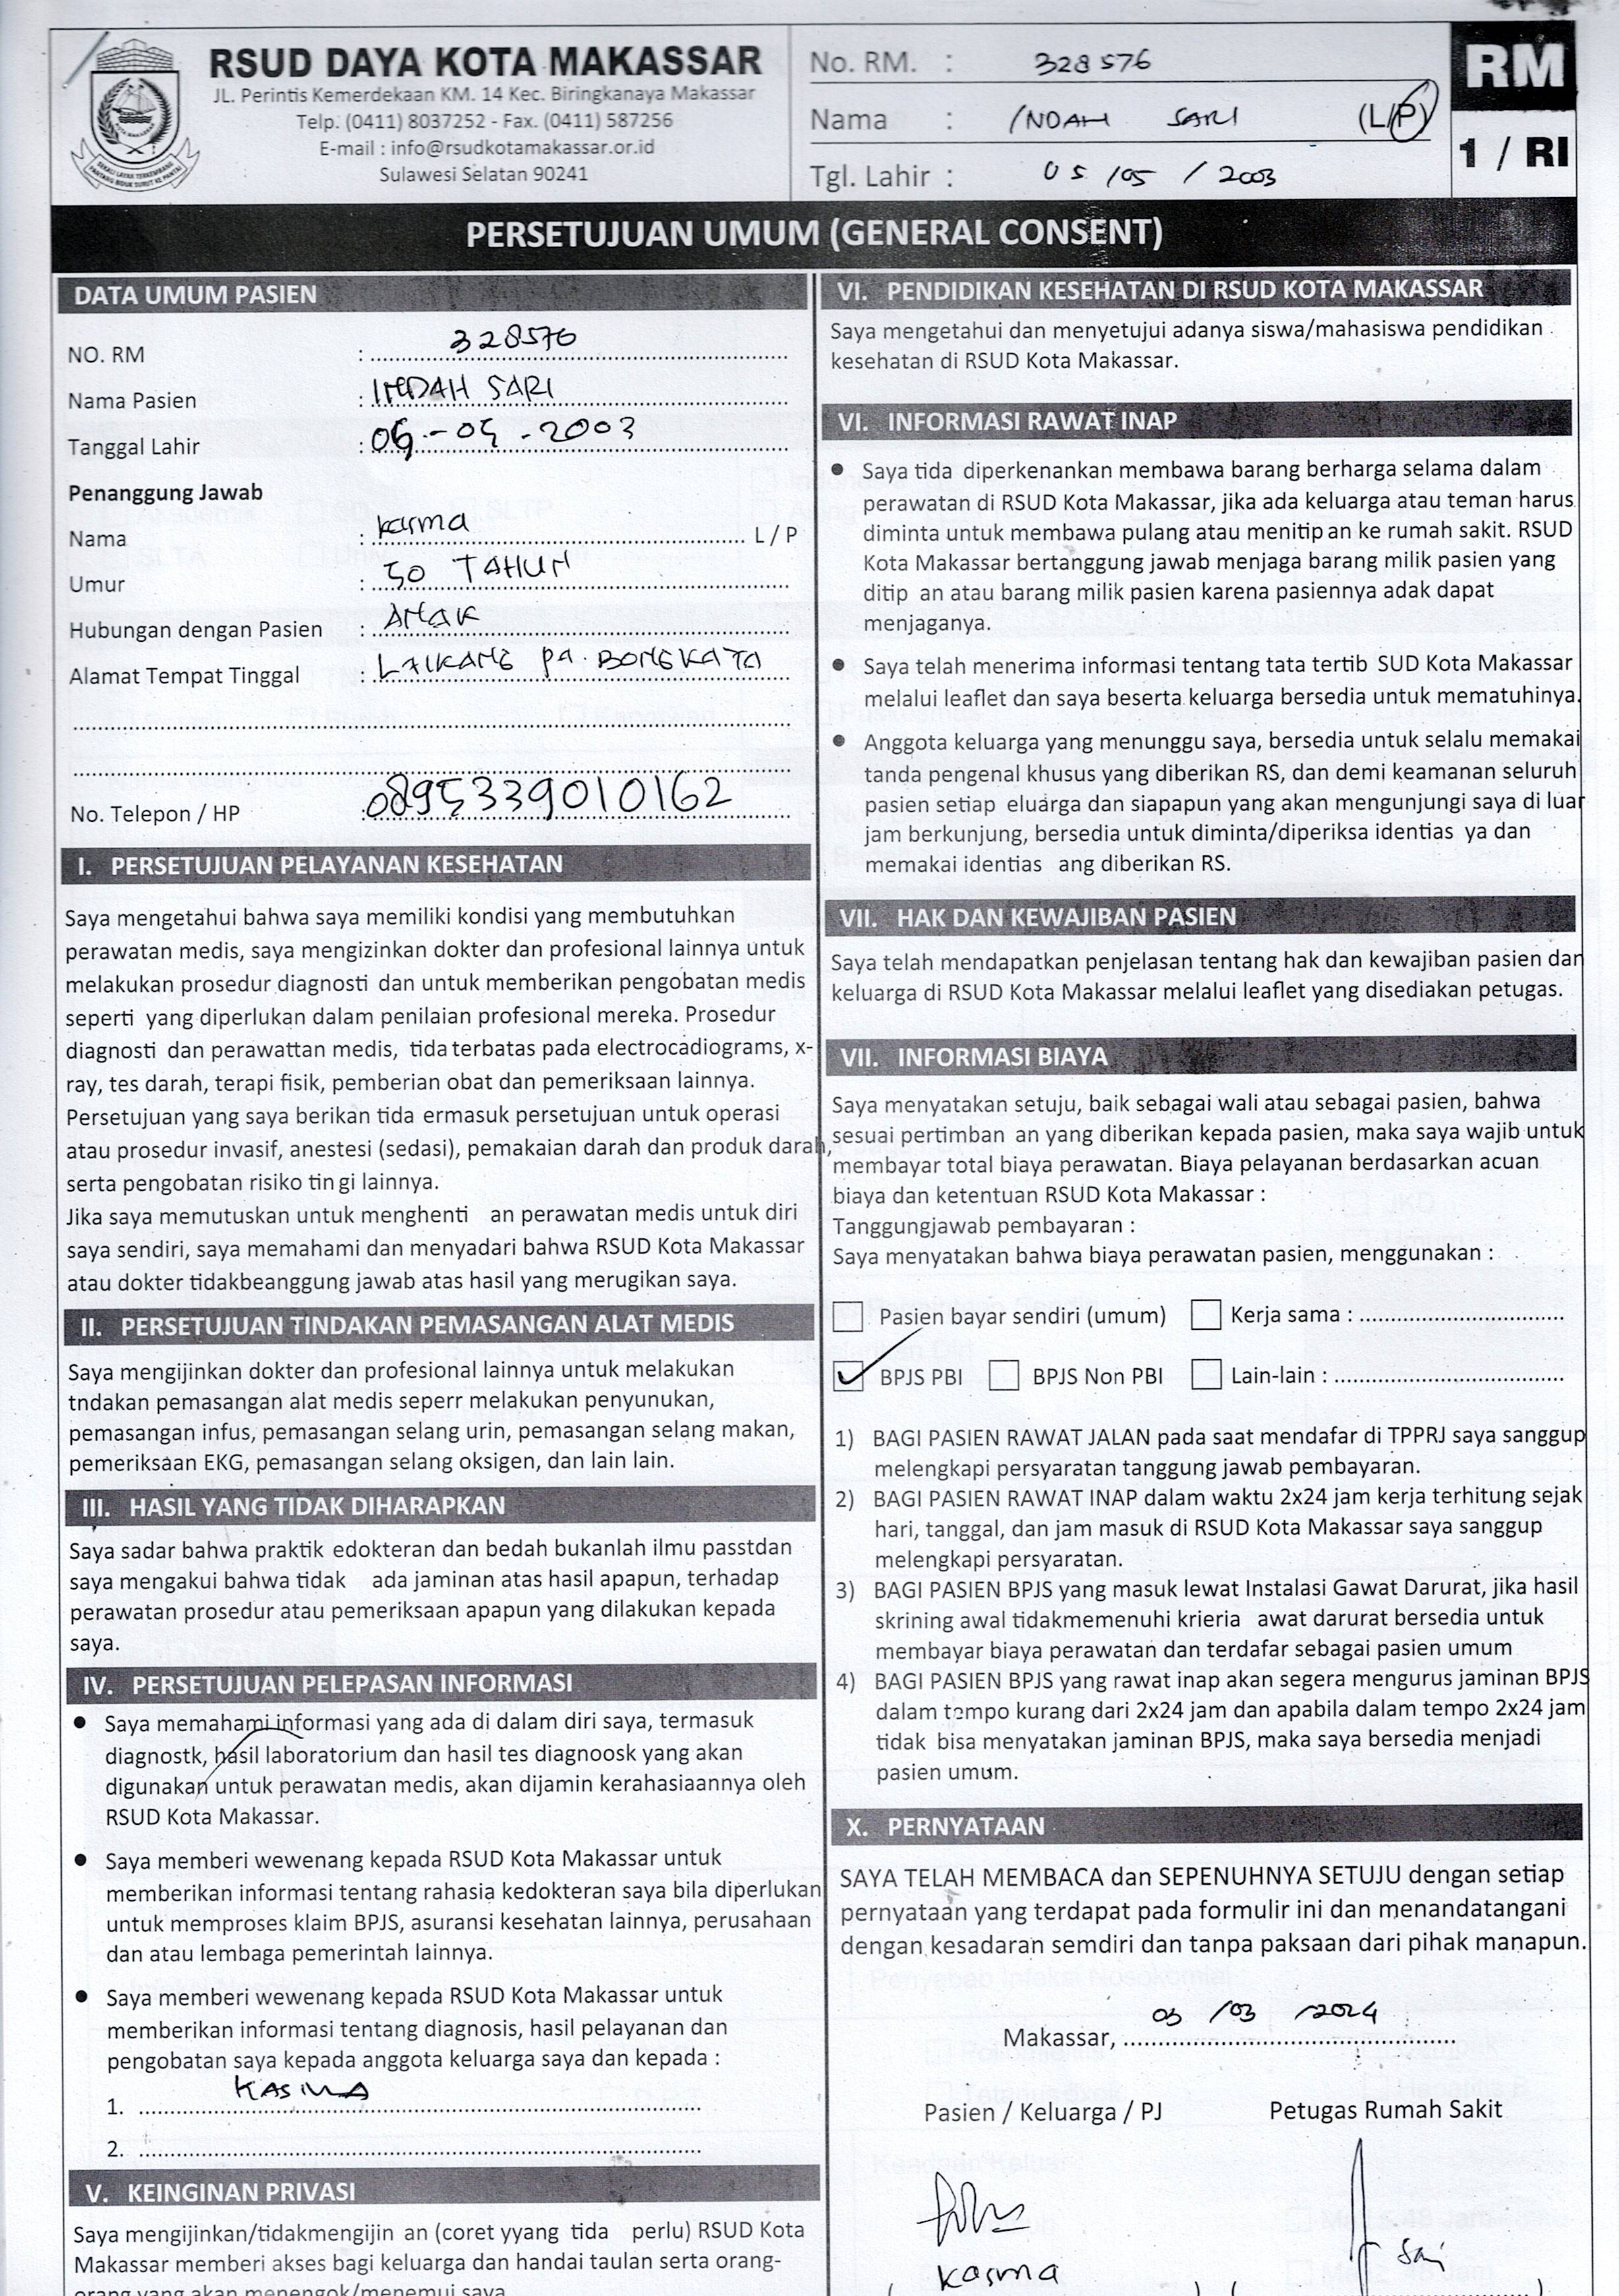 RSUD DAYA KOTA MAKASSAR
JL. Perintis Kemerdekaan KM. 14 Kec. Biringkanaya Makassar
Telp. (0411) 8037252 - Fax. (0411) 587256
E-mail : info@rsudkotamakassar.or.id
Sulawesi Selatan 90241
No. RM. : 328576
Nama : INDAH SARI (L/P)
Tgl. Lahir : 05/05/2003
RM
1 / RI
PERSETUJUAN UMUM (GENERAL CONSENT)
DATA UMUM PASIEN
NO. RM : 328576
Nama Pasien : INDAH SARI
Tanggal Lahir : 05-05-2003
Penanggung Jawab
Nama : kasma L / P
Umur : 50 TAHUN
Hubungan dengan Pasien : ANAK
Alamat Tempat Tinggal : LAIKANG
No. Telepon / HP : 0895339010162
I. PERSETUJUAN PELAYANAN KESEHATAN
Saya mengetahui bahwa saya memiliki kondisi yang membutuhkan
perawatan medis, saya mengizinkan dokter dan profesional lainnya untuk
melakukan prosedur diagnosti dan untuk memberikan pengobatan medis
seperti yang diperlukan dalam penilaian profesional mereka. Prosedur
diagnosti dan perawattan medis, tida terbatas pada electrocadiograms, x-
ray, tes darah, terapi fisik, pemberian obat dan pemeriksaan lainnya.
Persetujuan yang saya berikan tida ermasuk persetujuan untuk operasi
atau prosedur invasif, anestesi (sedasi), pemakaian darah dan produk darah,
serta pengobatan risiko tin gi lainnya.
Jika saya memutuskan untuk menghenti an perawatan medis untuk diri
saya sendiri, saya memahami dan menyadari bahwa RSUD Kota Makassar
atau dokter tidakbeanggung jawab atas hasil yang merugikan saya.
II. PERSETUJUAN TINDAKAN PEMASANGAN ALAT MEDIS
Saya mengijinkan dokter dan profesional lainnya untuk melakukan
tndakan pemasangan alat medis seperr melakukan penyunukan,
pemasangan infus, pemasangan selang urin, pemasangan selang makan,
pemeriksaan EKG, pemasangan selang oksigen, dan lain lain.
III. HASIL YANG TIDAK DIHARAPKAN
Saya sadar bahwa praktik edokteran dan bedah bukanlah ilmu passtdan
saya mengakui bahwa tidak ada jaminan atas hasil apapun, terhadap
perawatan prosedur atau pemeriksaan apapun yang dilakukan kepada
saya.
IV. PERSETUJUAN PELEPASAN INFORMASI
● Saya memahami informasi yang ada di dalam diri saya, termasuk
diagnostk, hasil laboratorium dan hasil tes diagnoosk yang akan
digunakan untuk perawatan medis, akan dijamin kerahasiaannya oleh
RSUD Kota Makassar.
● Saya memberi wewenang kepada RSUD Kota Makassar untuk
memberikan informasi tentang rahasia kedokteran saya bila diperlukan
untuk memproses klaim BPJS, asuransi kesehatan lainnya, perusahaan
dan atau lembaga pemerintah lainnya.
● Saya memberi wewenang kepada RSUD Kota Makassar untuk
memberikan informasi tentang diagnosis, hasil pelayanan dan
pengobatan saya kepada anggota keluarga saya dan kepada :
1. KASMA
2.
V. KEINGINAN PRIVASI
Saya mengijinkan/tidakmengijin an (coret yyang tida perlu) RSUD Kota
Makassar memberi akses bagi keluarga dan handai taulan serta orang-
orang yang akan menengok/menemui saya
VI. PENDIDIKAN KESEHATAN DI RSUD KOTA MAKASSAR
Saya mengetahui dan menyetujui adanya siswa/mahasiswa pendidikan
kesehatan di RSUD Kota Makassar.
VI. INFORMASI RAWAT INAP
● Saya tida diperkenankan membawa barang berharga selama dalam
perawatan di RSUD Kota Makassar, jika ada keluarga atau teman harus
diminta untuk membawa pulang atau menitip an ke rumah sakit. RSUD
Kota Makassar bertanggung jawab menjaga barang milik pasien yang
ditip an atau barang milik pasien karena pasiennya adak dapat
menjaganya.
● Saya telah menerima informasi tentang tata tertib SUD Kota Makassar
melalui leaflet dan saya beserta keluarga bersedia untuk mematuhinya.
● Anggota keluarga yang menunggu saya, bersedia untuk selalu memakai
tanda pengenal khusus yang diberikan RS, dan demi keamanan seluruh
pasien setiap eluarga dan siapapun yang akan mengunjungi saya di luar
jam berkunjung, bersedia untuk diminta/diperiksa identias ya dan
memakai identias ang diberikan RS.
VII. HAK DAN KEWAJIBAN PASIEN
Saya telah mendapatkan penjelasan tentang hak dan kewajiban pasien dan
keluarga di RSUD Kota Makassar melalui leaflet yang disediakan petugas.
VII. INFORMASI BIAYA
Saya menyatakan setuju, baik sebagai wali atau sebagai pasien, bahwa
sesuai pertimban an yang diberikan kepada pasien, maka saya wajib untuk
membayar total biaya perawatan. Biaya pelayanan berdasarkan acuan
biaya dan ketentuan RSUD Kota Makassar :
Tanggungjawab pembayaran :
Saya menyatakan bahwa biaya perawatan pasien, menggunakan :
Pasien bayar sendiri (umum) Kerja sama :
BPJS PBI BPJS Non PBI Lain-lain :
1) BAGI PASIEN RAWAT JALAN pada saat mendafar di TPPRJ saya sanggup
melengkapi persyaratan tanggung jawab pembayaran.
2) BAGI PASIEN RAWAT INAP dalam waktu 2x24 jam kerja terhitung sejak
hari, tanggal, dan jam masuk di RSUD Kota Makassar saya sanggup
melengkapi persyaratan.
3) BAGI PASIEN BPJS yang masuk lewat Instalasi Gawat Darurat, jika hasil
skrining awal tidakmemenuhi krieria awat darurat bersedia untuk
membayar biaya perawatan dan terdafar sebagai pasien umum
4) BAGI PASIEN BPJS yang rawat inap akan segera mengurus jaminan BPJS
dalam tempo kurang dari 2x24 jam dan apabila dalam tempo 2x24 jam
tidak bisa menyatakan jaminan BPJS, maka saya bersedia menjadi
pasien umum.
X. PERNYATAAN
SAYA TELAH MEMBACA dan SEPENUHNYA SETUJU dengan setiap
pernyataan yang terdapat pada formulir ini dan menandatangani
dengan kesadaran semdiri dan tanpa paksaan dari pihak manapun.
Makassar, 03/03/2024
Pasien / Keluarga / PJ Petugas Rumah Sakit
Kasma